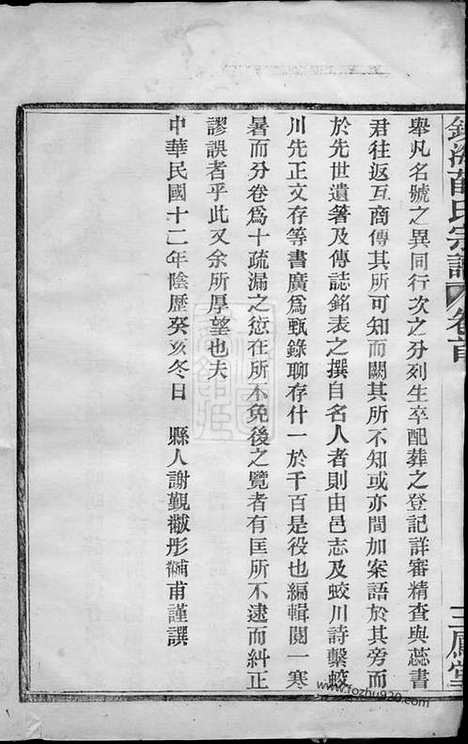 鎮海薛氏宗譜 卷首 三鳳堂
舉凡名號之異同行次之分列生卒配葬之登記詳審精查與蕊書
君往返互商傳其所可知而闕其所不知或亦間加案語於其旁而
於先世遺箸及傳誌銘表之撰自名人者則由邑志及蛟川詩繫蛟
川先正文存等書廣爲甄錄聊存什一於千百是役也編輯閱一寒
暑而分卷爲十疏漏之愆在所不免後之覽者有匡所不逮而糾正
謬誤者乎此又余所厚望也夫
中華民國十二年陰歷癸亥冬日 縣人謝覲黻彤黼甫謹譔
www.fozhu920.com